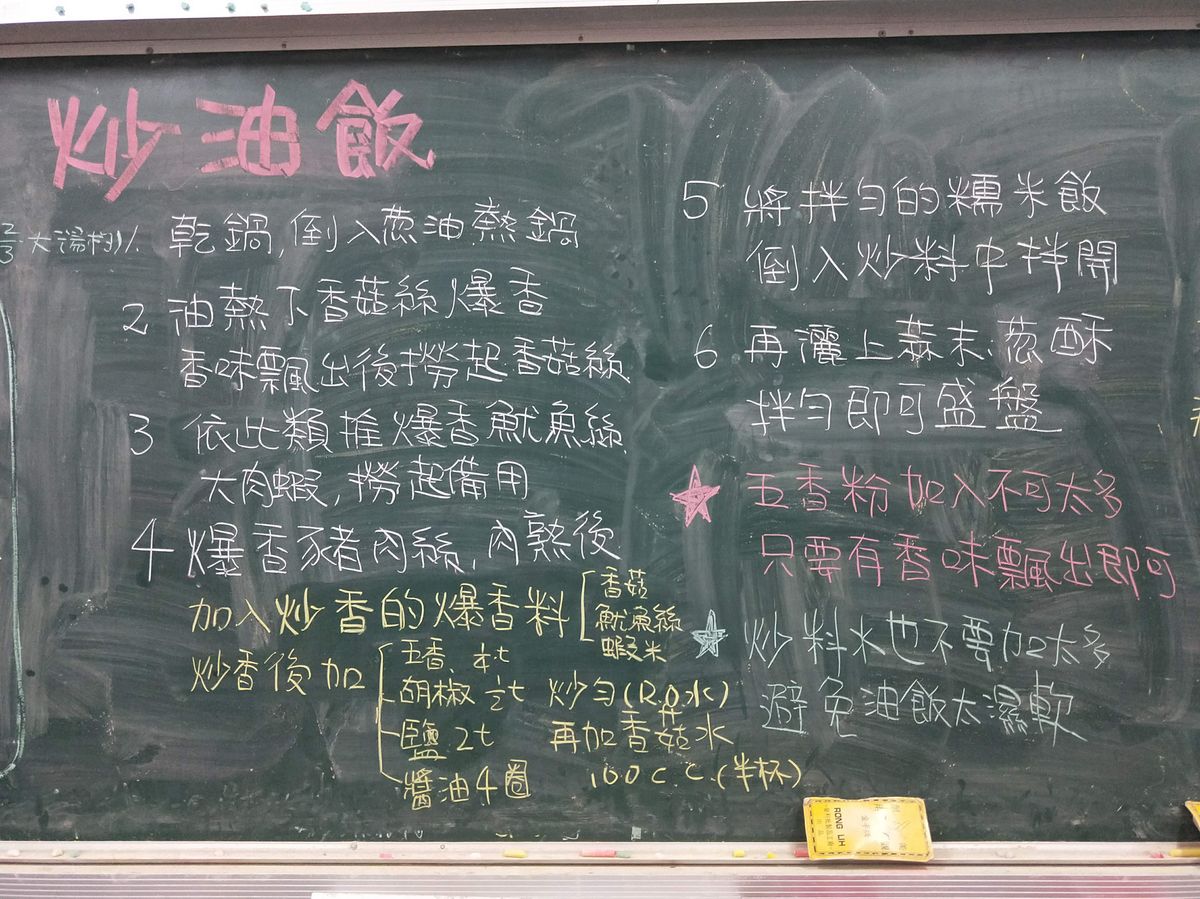 炒油飯
2/3 大湯杓 1. 乾鍋,倒入葱油.熱鍋
2 油熱下香菇絲爆香
香味飄出後撈起香菇絲
3 依此類推爆香魷魚絲
大肉蝦,撈起備用
4 爆香豬肉絲,肉熟後
加入炒香的爆香料
香菇
魷魚絲
蝦米
炒香後加
五香
胡椒 1/2t
鹽 2t
醬油4圈
炒勻(R.O.水)
再加香菇水
100c.c.(半杯)
5 將拌勻的糯米飯
倒入炒料中拌開
6 再灑上蒜末、葱酥
拌勻即可盛盤
☆ 五香粉加入不可太多
只要有香味飄出即可
☆ 炒料水也不要加太多
避免油飯太濕軟
RONG LIH